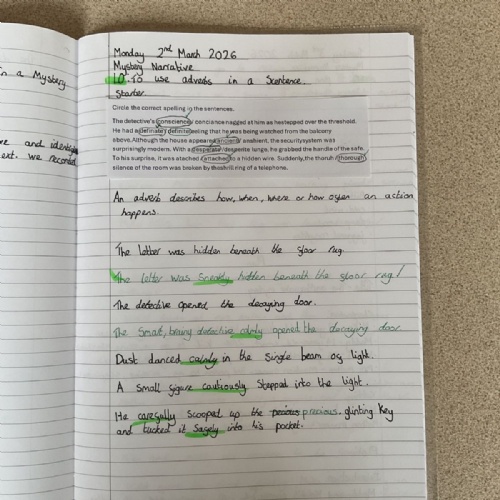 n a Mystery.
Monday 2nd March 2026
Mystery Narrative
LO: To use adverbs in a Scentence.
Starter
Circle the correct spelling in the sentences.
re and identify
The detective's conscience / concience nagged at him as he stepped over the threshold.
ext. We recorded
He had a definately / definite feeling that he was being watched from the balcony
above. Although the house appeared ancient / anxient, the security system was
surprisingly modern. With a desperate / desperite lunge, he grabbed the handle of the safe.
To his surprise, it was atached / attached to a hidden wire. Suddenly, the thoruh / thorough
silence of the room was broken by the shrill ring of a telephone.
An adverb describes how, when, where or how often an action
happens.
The letter was hidden beneath the floor rug.
The letter was sneakly hidden beneath the floor rug!
The detective opened the decaying door.
The Smart, brainy detective calmly opened the decaying door
Dust danced calmly in the single beam of light.
A small figure cautiously stepped into the light.
He carefully scooped up the precious, glinting key
and tucked it safely into his pocket.